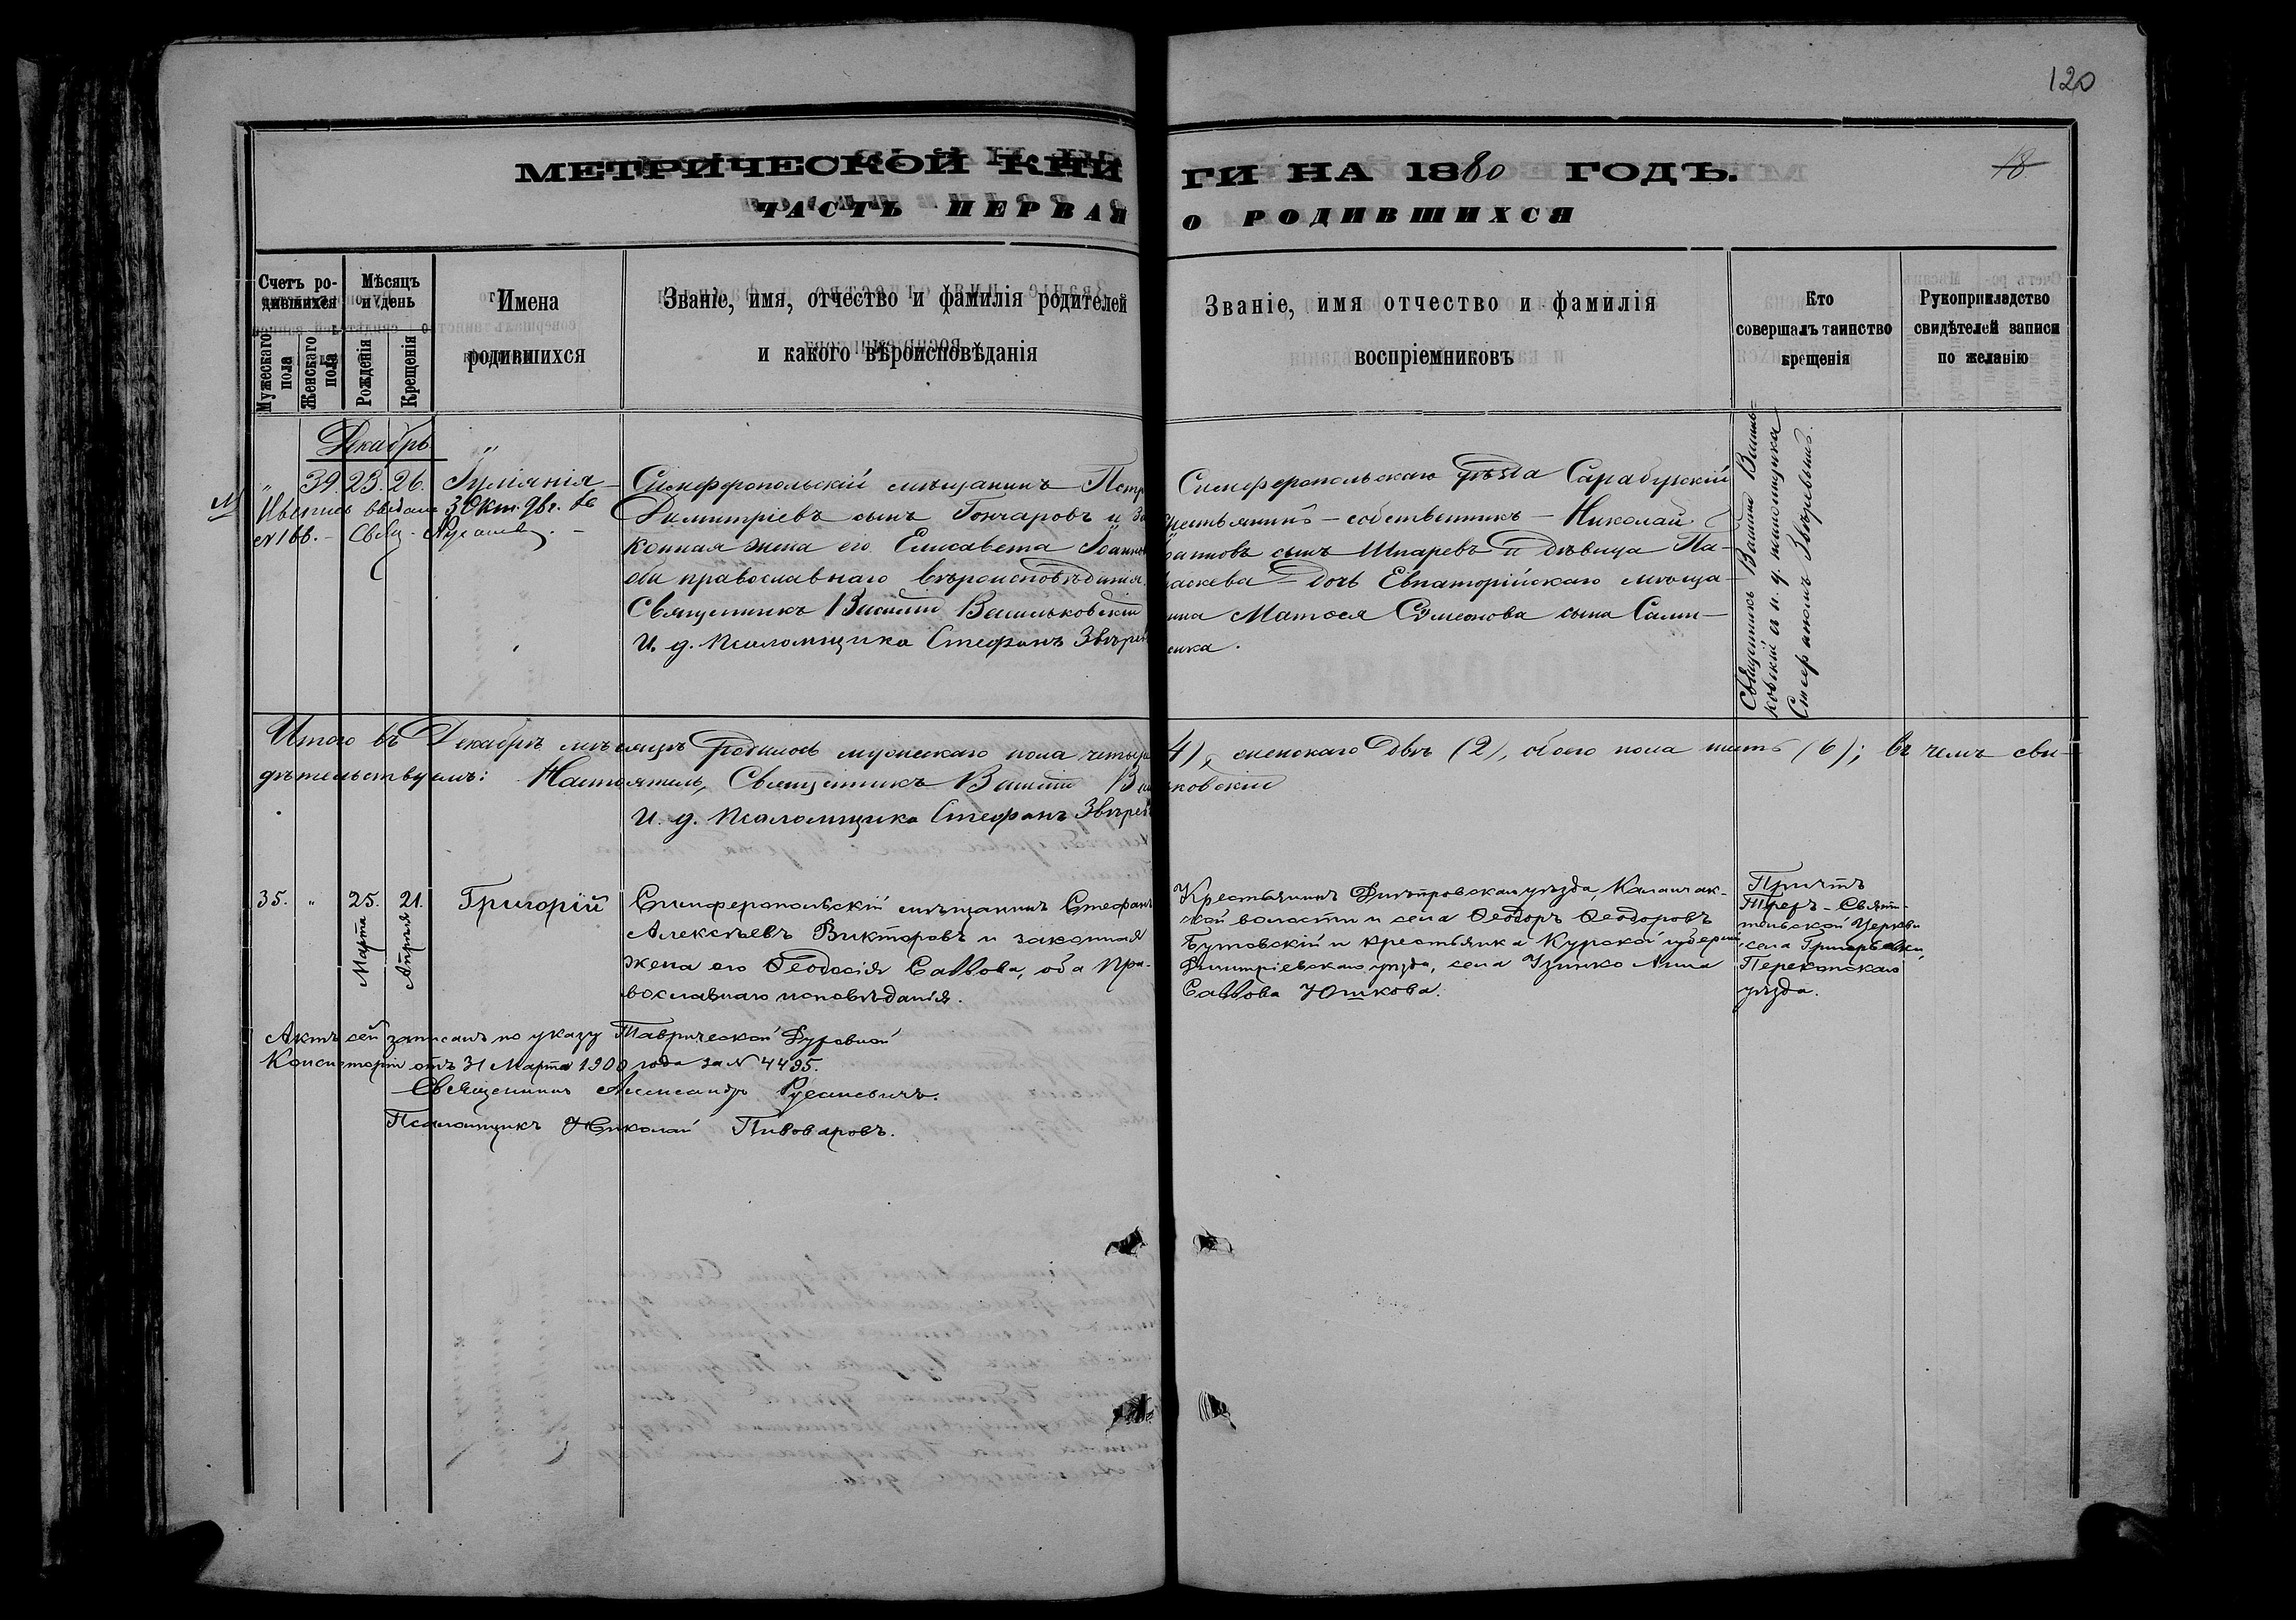 120
МЕТРИЧЕСКОЙ КНИ ГИ НА 1880 ГОДЪ.
18
ЧАСТЬ ПЕРВАЯ О РОДИВШИХСЯ
Счетъ ро-
дившихся
Мужескаго пола
Женскаго пола
Мѣсяцъ
и день
Рожденія
Крещенія
Имена
родившихся
Званіе, имя, отчество и фамилія родителей
и какого вѣроисповѣданія
Званіе, имя отчество и фамилія
воспріемниковъ
Кто
совершалъ таинство
крещенія
Рукоприкладство
свидѣтелей записи
по желанію
Декабрь
" 39. 23. 26. Іуліанія
№ 166. - Свящ.
Симферопольскій мѣщанинъ Петр
Димитріевъ сынъ Гончаровъ и за
конная жена его Елисавета Іоанно
оба православнаго вѣроисповѣданія.
Священникъ Василій Васильковскій
И. д. псаломщика Стефанъ Звѣрев
Симферопольскаго уѣзда Сарабузскій
крестьянинъ - собственникъ - Николай
Іоанновъ сынъ Шпаревъ и дѣвица Па-
раскева - дочь Евпаторійскаго мѣща-
нина Матѳея Сѵмеонова сына Сали-
сика.
Священникъ Василій Василь-
ковскій съ и. д. псаломщика
Стефаномъ Звѣревымъ.
Итого въ Декабрѣ мѣсяцѣ родилось мужескаго пола четыре 4), женскаго двѣ (2), обоего пола шесть (6); въ чемъ сви-
дѣтельствуемъ: Настоятель, Священникъ Василій Васильковскій
И. д. псаломщика Стефанъ Звѣрев
35. " 25. Марта 21. Апрѣля Григорій
Симферопольскій мѣщанинъ Стефанъ
Алексѣевъ Викторовъ и законная
жена его Ѳеодосія Саввова, оба пра-
вославнаго исповѣданія.
Крестьянинъ Днѣпровскаго уѣзда, Каланчак-
ской волости и села Ѳеодоръ Ѳеодоровъ
Бутовскій и крестьянка Курской губерніи,
Дмитріевскаго уѣзда, села Анна
Саввова Юшкова.
Причтъ
Трехъ-Святи-
тельской Церкви
села Григорьевки,
Перекопскаго
уѣзда.
Актъ сей записанъ по указу Таврической Духовной
Консисторіи отъ 31 Марта 1900 года за № 4495.
Священникъ Александръ Русаневичъ.
Псаломщикъ Николай Пивоваровъ.